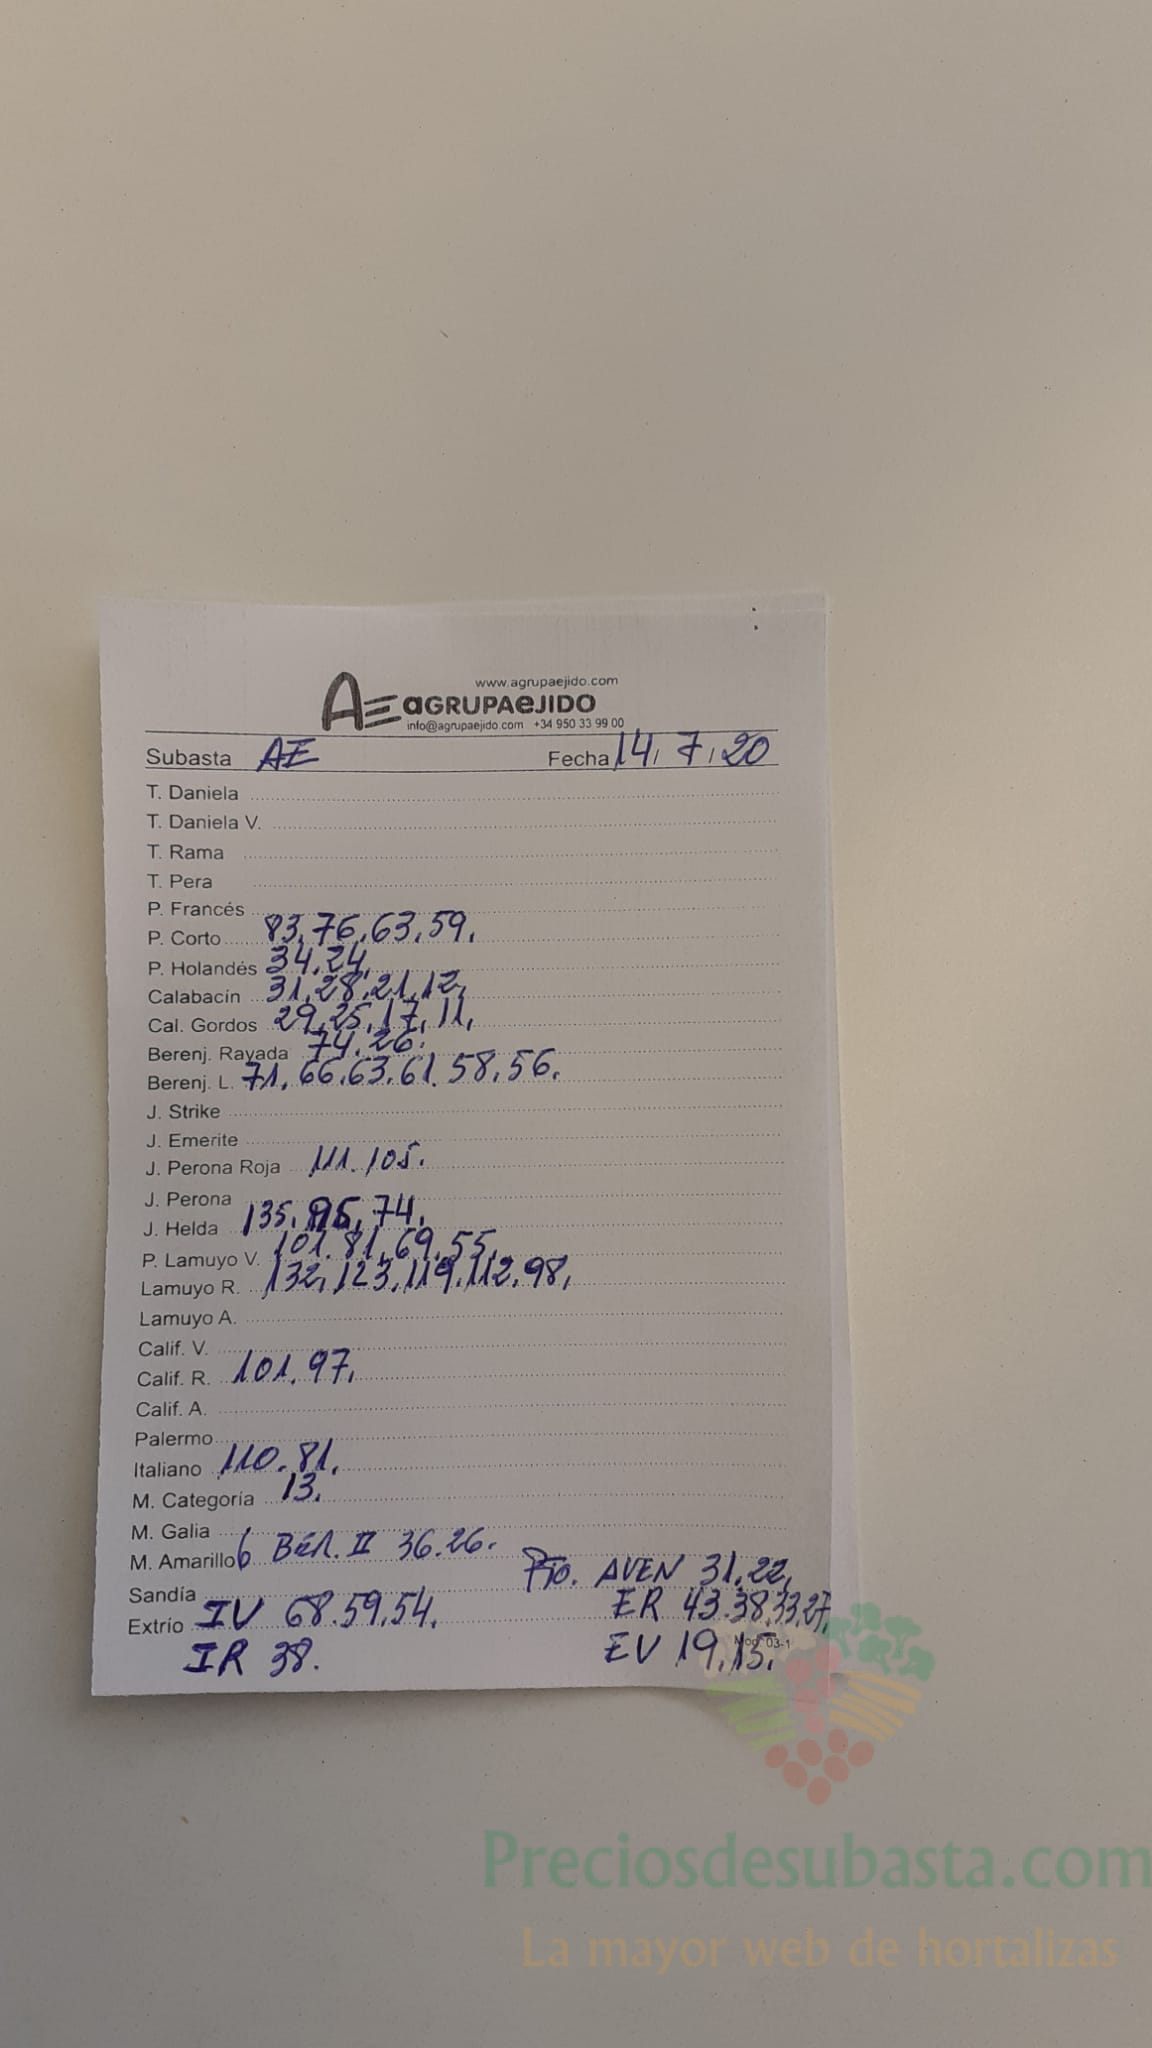 www.agrupaejido.com
AE aGRUPAeJIDO
info@agrupaejido.com +34 950 33 99 00
Subasta AE Fecha 14, 7, 20
T. Daniela
T. Daniela V.
T. Rama
T. Pera
P. Francés
P. Corto 83, 76, 63, 59,
P. Holandés 34, 24,
Calabacín 31, 28, 21, 12,
Cal. Gordos 29, 25, 17, 11,
Berenj. Rayada 74. 26.
Berenj. L. 71. 66. 63. 61. 58. 56.
J. Strike
J. Emerite
J. Perona Roja 111. 105.
J. Perona
J. Helda 135. 95, 74.
P. Lamuyo V. 101. 81, 69. 55.
Lamuyo R. 132, 123. 119. 112. 98,
Lamuyo A.
Calif. V.
Calif. R. 101. 97.
Calif. A.
Palermo
Italiano 110. 81.
M. Categoría 13.
M. Galia
M. Amarillo 6 Ber. II 36. 26.
Sandía Pio. AVEN 31. 22,
Extrío IV 68. 59. 54. ER 43. 38. 33. 27.
IR 38. EV 19. 15.
Mod. 03-1
Preciosdesubasta.com
La mayor web de hortalizas